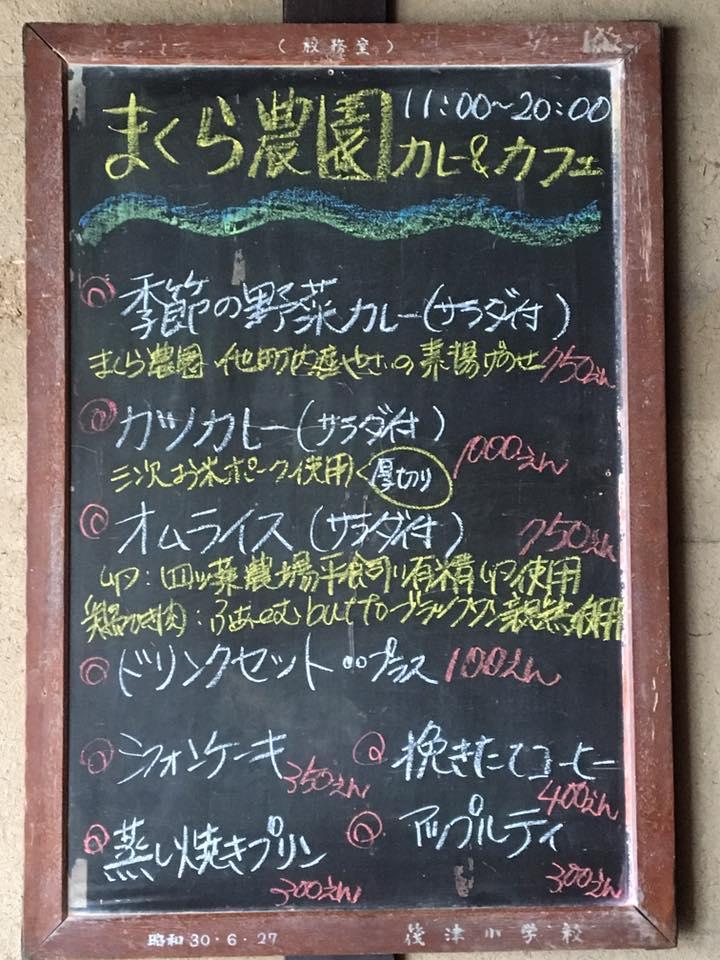 (校務室)
まくら農園 11:00~20:00
カレー&カフェ
季節の野菜カレー(サラダ付)
まくら農園・他町内産やさいの素揚げのせ 750えん
カツカレー(サラダ付)
1000えん
三次お米ポーク使用 厚切り
オムライス(サラダ付) 750えん
卵:四ツ葉農場平飼い有精卵使用
鶏ひき肉:ふぁーむbuffo 使用
ドリンクセット プラス 100えん
シフォンケーキ 350えん
挽きたてコーヒー 400えん
蒸し焼きプリン 300えん
アップルティ 300えん
昭和30・6・27
津小学校